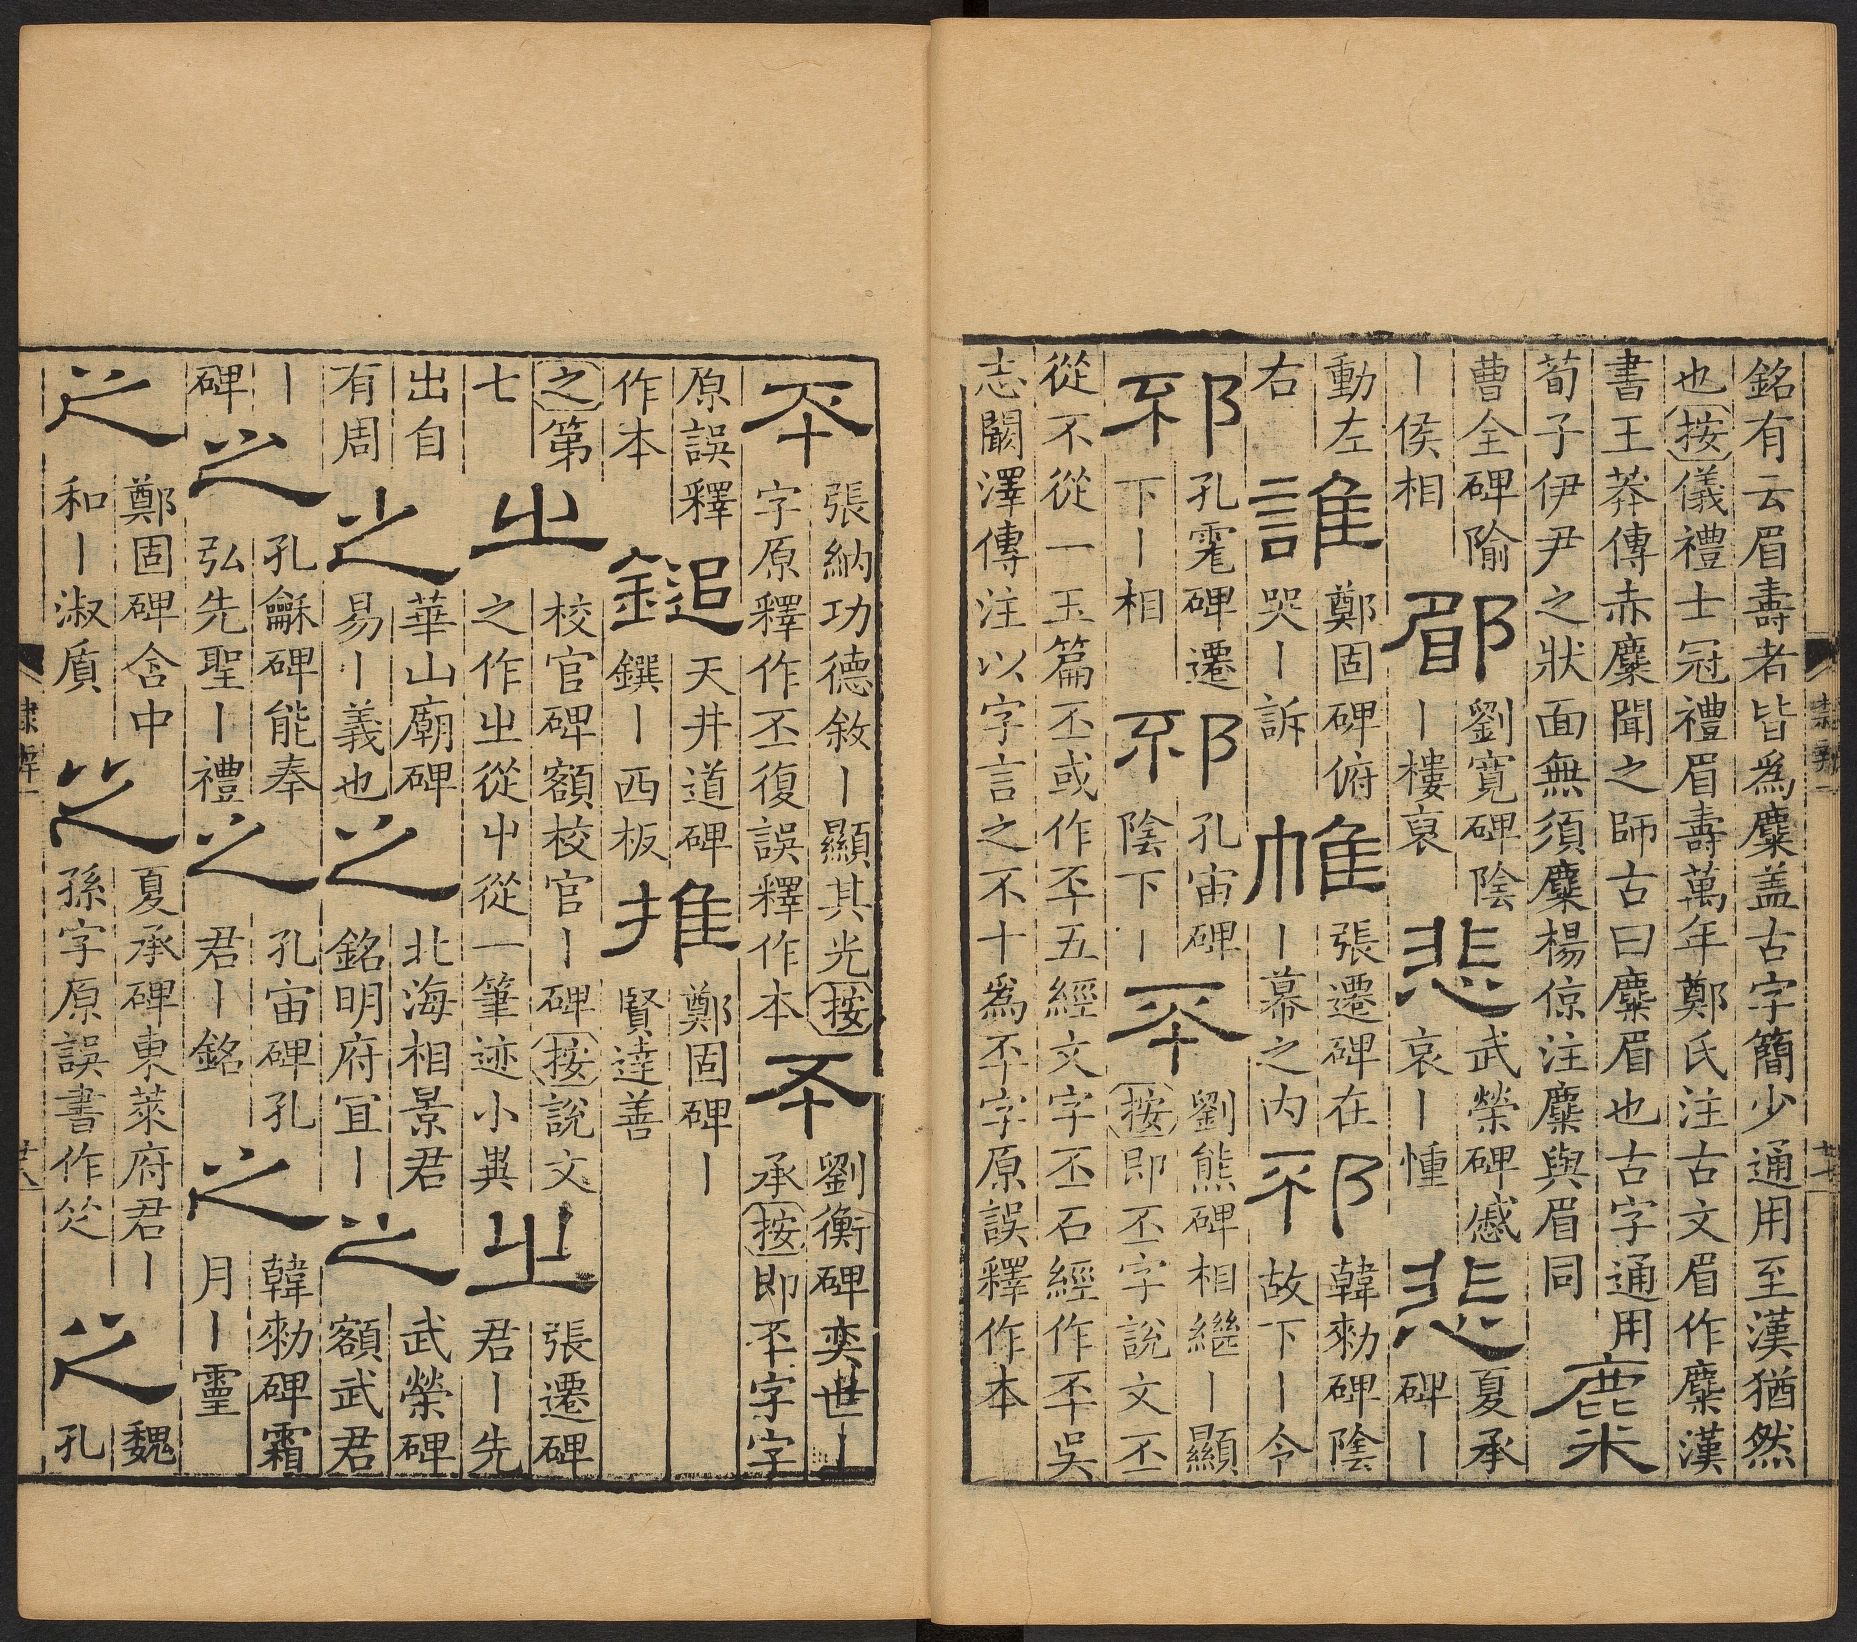 銘有云眉壽者皆爲麋盖古字簡少通用至漢猶然
也按儀禮士冠禮眉壽萬年鄭氏注古文眉作麋漢
書王莽傳赤麋聞之師古曰麋眉也古字通用
荀子伊尹之狀面無須麋楊倞注麋與眉同
麋
曹全碑隃
丨侯相
郿
劉寬碑陰
丨樓裒
悲
武榮碑慼
哀丨慟
悲
夏承
碑丨
動左
右
誰
鄭固碑俯
哭丨訴
帷
張遷碑在
丨幕之内
邳
韓勑碑陰
故下丨令
邳
孔碑遷
下丨相
邳
孔宙碑
陰下丨
㔻
劉熊碑相繼丨顯
按即丕字説文丕
從不從一玉篇丕或作㔻五經文字丕石經作㔻吳
志闞澤傳注以字言之不十爲㔻字原誤釋作本
㔻
張納功德敘丨顯其光按
字原釋作丕復誤釋作本
㔻
劉衡碑奕世丨
承按即㔻字字
原誤釋
作本
鎚
天井道碑
鐉丨西板
推
鄭固碑丨
賢達善
之第
七
㞢
校官碑額校官丨碑按説文
之作㞢從屮從一筆迹小異
㞢
張遷碑
君丨先
出自
有周
之
華山廟碑
易丨義也
之
北海相景君
銘明府冝丨
之
武榮碑
額武君
丨
碑
之
孔龢碑能奉
弘先聖丨禮
之
孔宙碑孔
君丨銘
之
韓勑碑霜
月丨靈
之
鄭固碑含中
和丨淑質
之
夏承碑東萊府君丨
孫字原誤書作
之
魏
孔